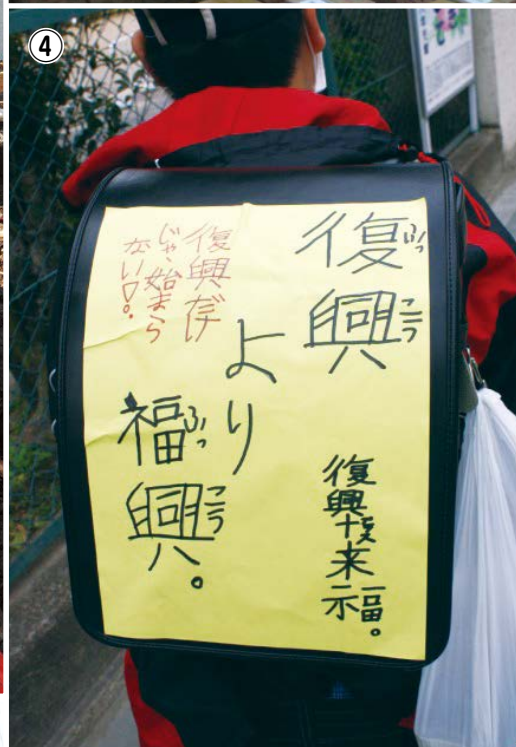 ④
復興
ふっこう
より
福興。
ふっこう
復興+来福。
復興だけ
じゃ始まら
ない!!